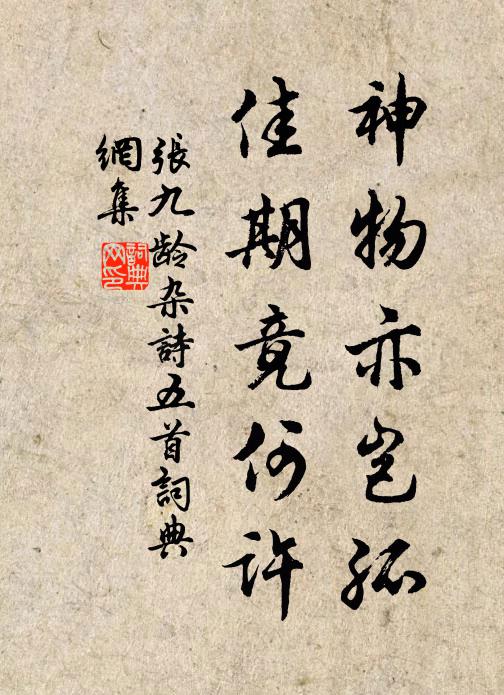 神物亦岂孤
佳期竟何许
張九龄杂詩五首詞典
網集
詞典
网印